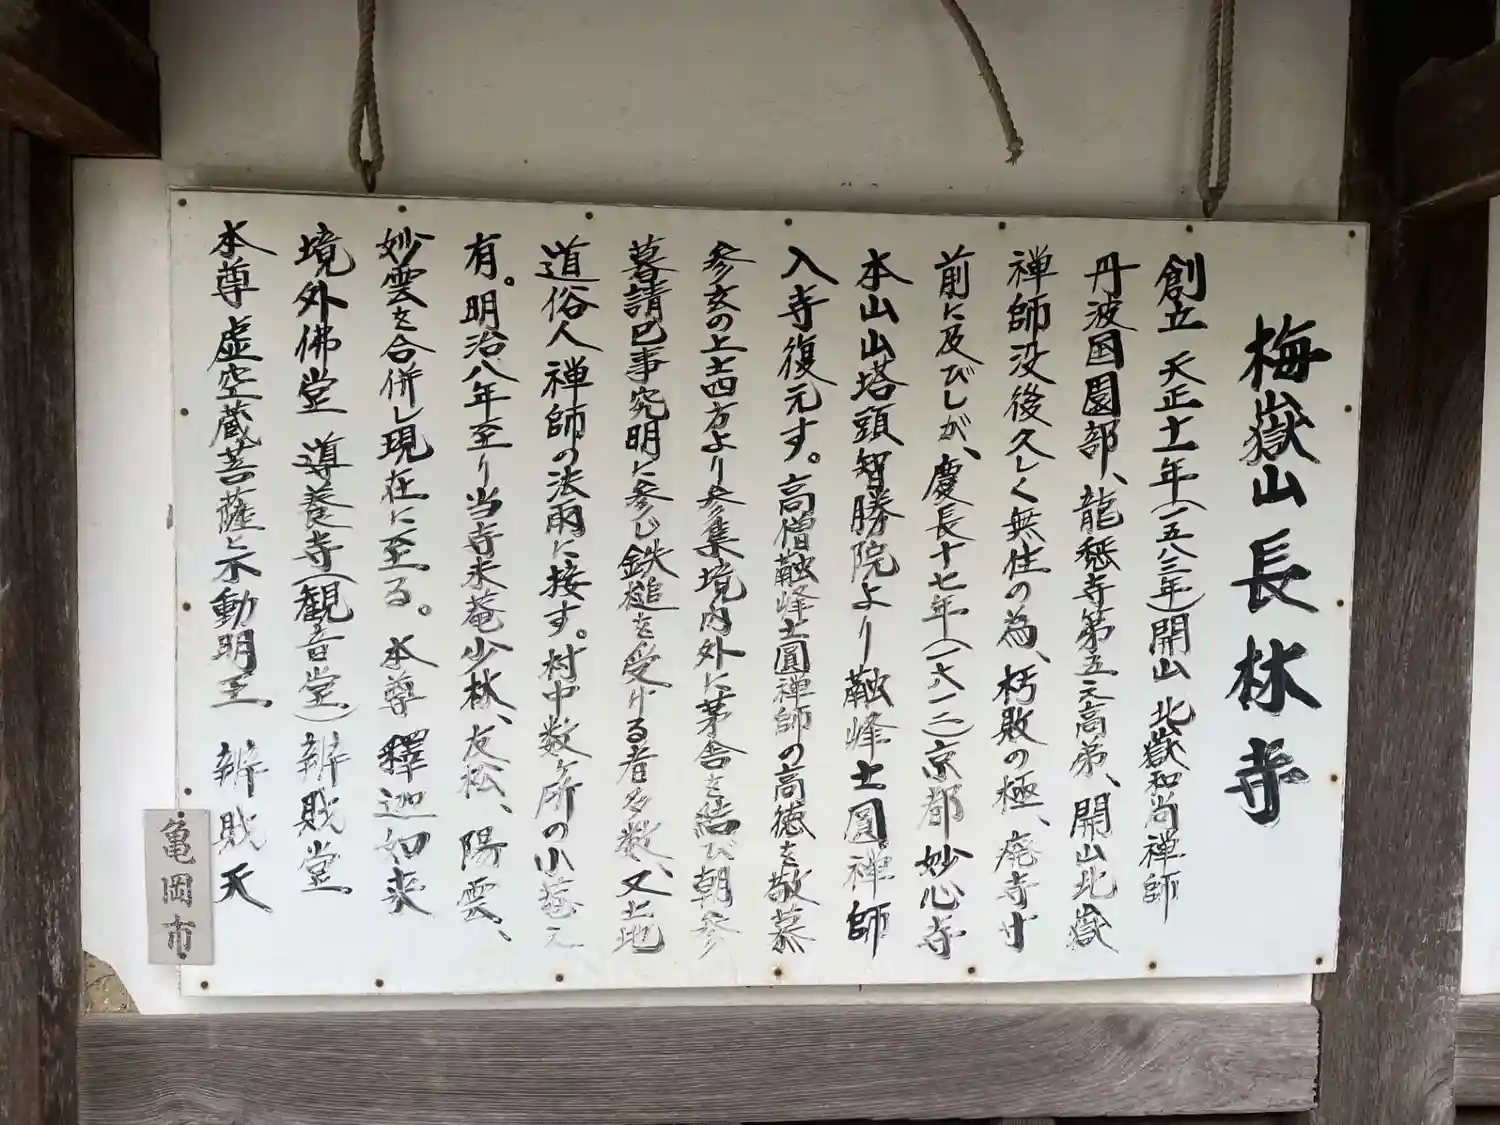 梅嶽山長林寺
創立 天正十一年(一五八三年)開山 北嶽和尚禅師
丹波国園部、龍穏寺第五元高弟、開山北嶽
禅師没後久しく無住の為、朽敗の極、廃寺寸
前に及びしが、慶長十七年(一六一二)京都妙心寺
本山山塔頭智勝院より鞁峰士圓禅師
入寺復元す。高僧鞁峰士圓禅師の高徳を敬慕
参玄の上士四方より参集境内外に茅舎を結び朝参
暮請已事究明に参じ鉄槌を受ける者多数、又土地
道俗人禅師の法雨に接す。村中数ヶ所の小菴元
有。明治八年至り当寺末菴少林、友松、陽雲、
妙雲を合併し現在に至る。本尊 釋迦如来
境外佛堂 導養寺(観音堂) 辨財堂
本尊 虚空蔵菩薩と不動明王 辨財天
亀岡市